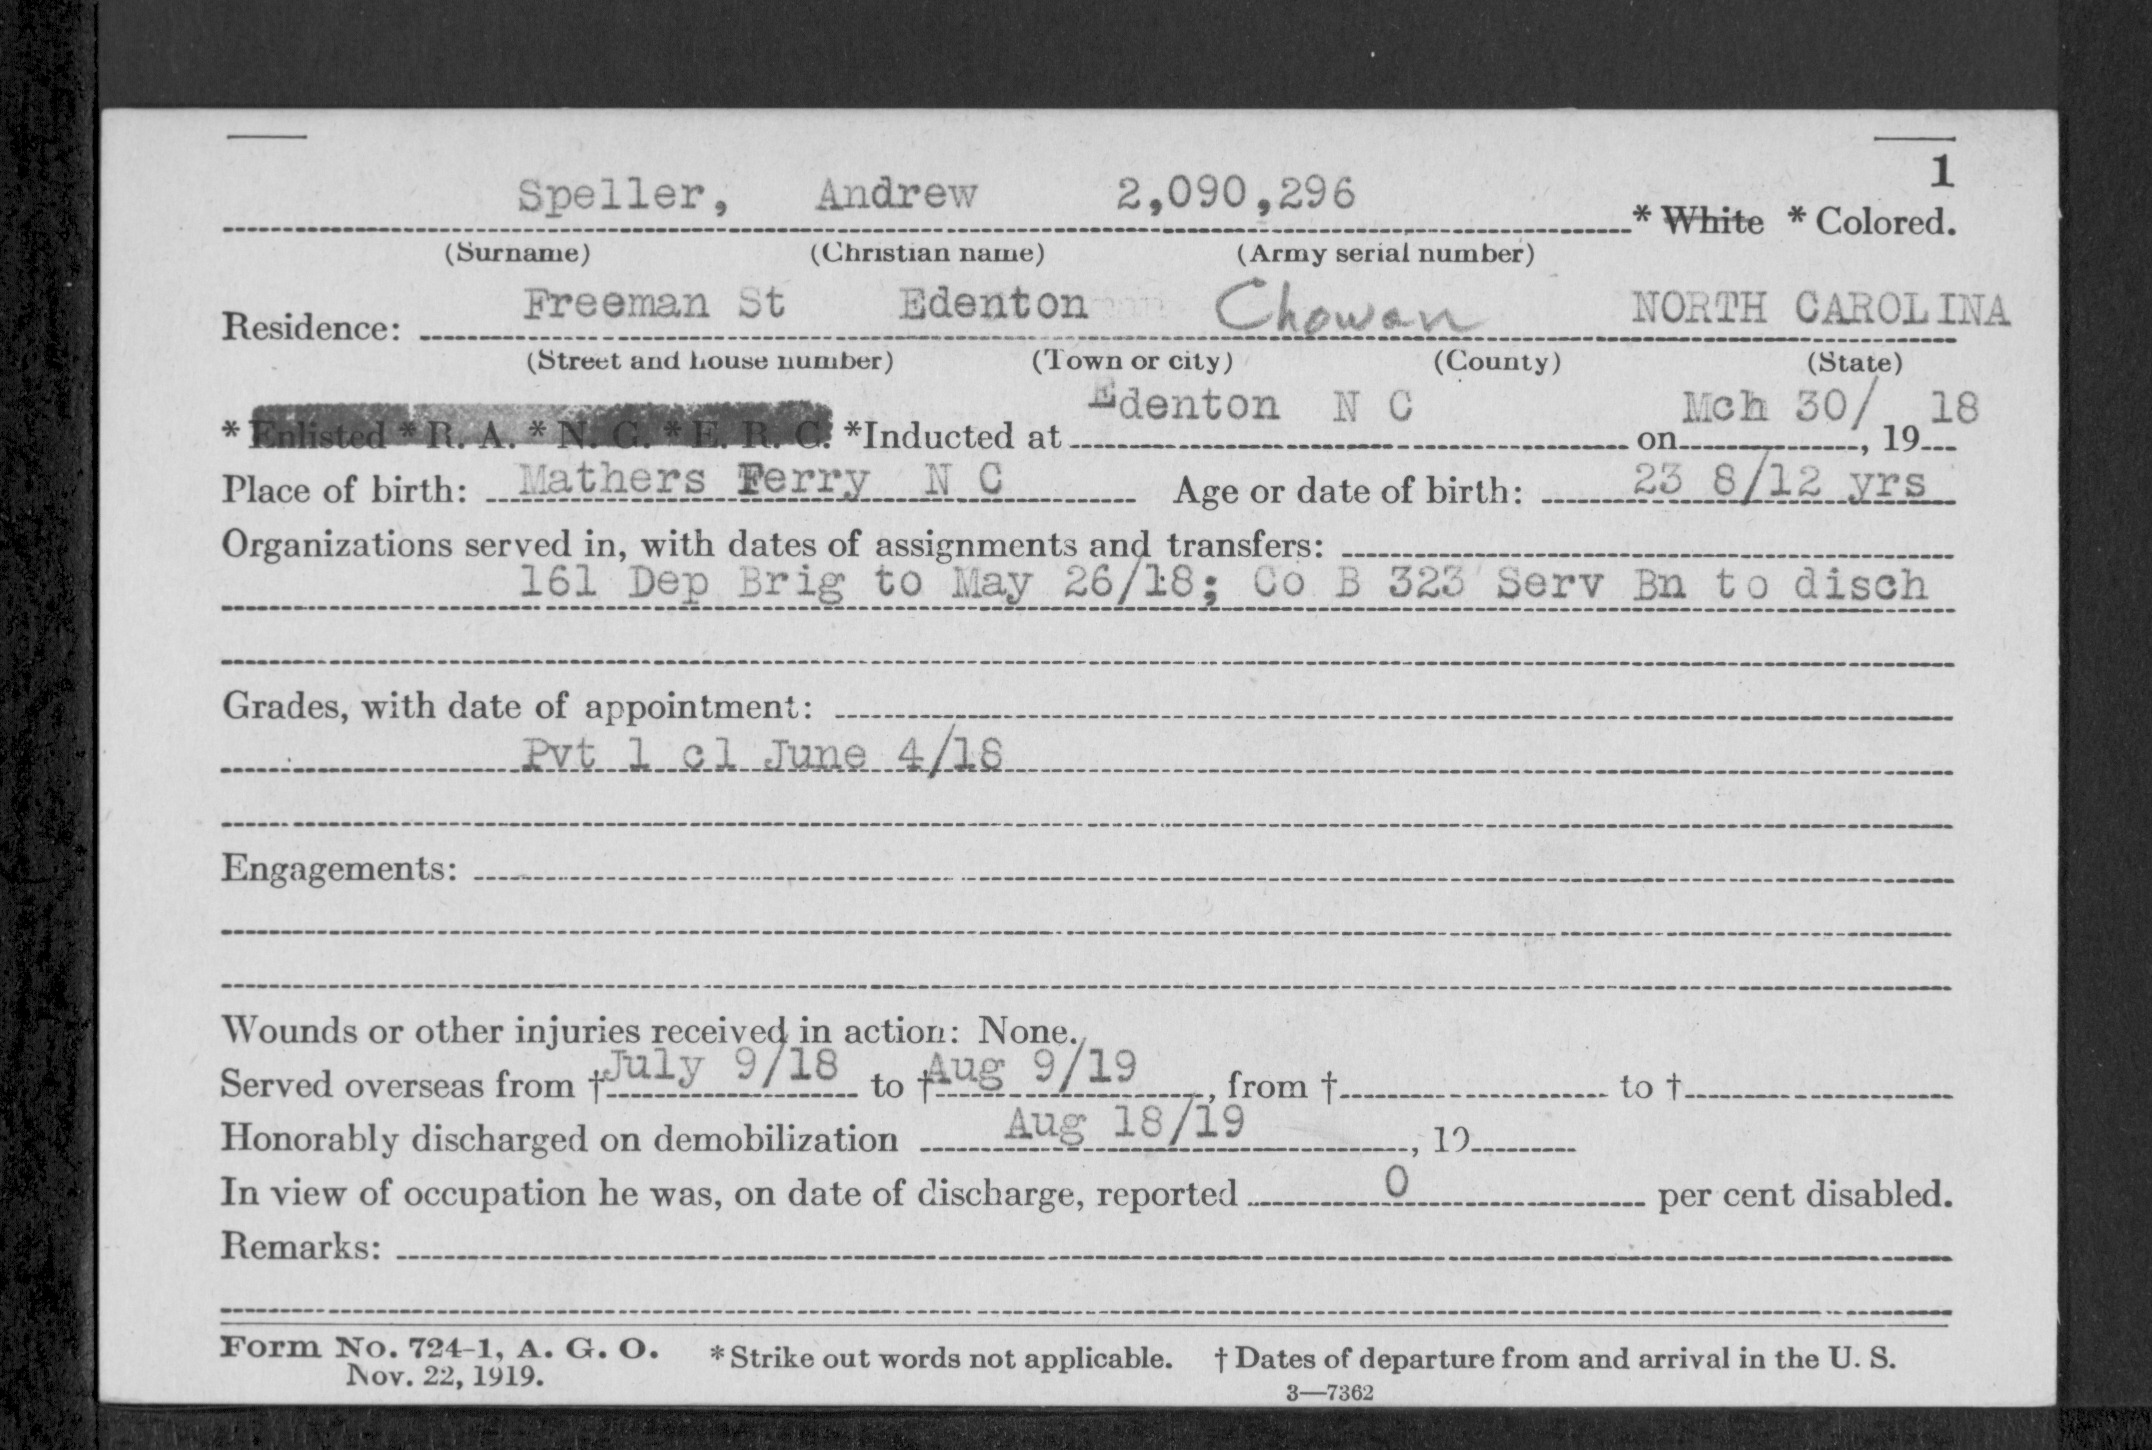 1
Speller, Andrew 2,090,296 * White * Colored.
(Surname) (Christian name) (Army serial number)
Residence: Freeman St Edenton Chowan NORTH CAROLINA
(Street and house number) (Town or city) (County) (State)
* Enlisted * R. A. * N. G. * E. R. C. *Inducted at Edenton N C on Mch 30/, 19 18
Place of birth: Mathers Ferry N C Age or date of birth: 23 8/12 yrs
Organizations served in, with dates of assignments and transfers:
161 Dep Brig to May 26/18; Co B 323 Serv Bn to disch
Grades, with date of appointment:
Pvt 1 cl June 4/18
Engagements:
Wounds or other injuries received in action: None.
Served overseas from † July 9/18 to † Aug 9/19, from † to †
Honorably discharged on demobilization Aug 18/19, 19
In view of occupation he was, on date of discharge, reported 0 per cent disabled.
Remarks:
Form No. 724-1, A. G. O. * Strike out words not applicable. † Dates of departure from and arrival in the U. S.
Nov. 22, 1919.
3—7362